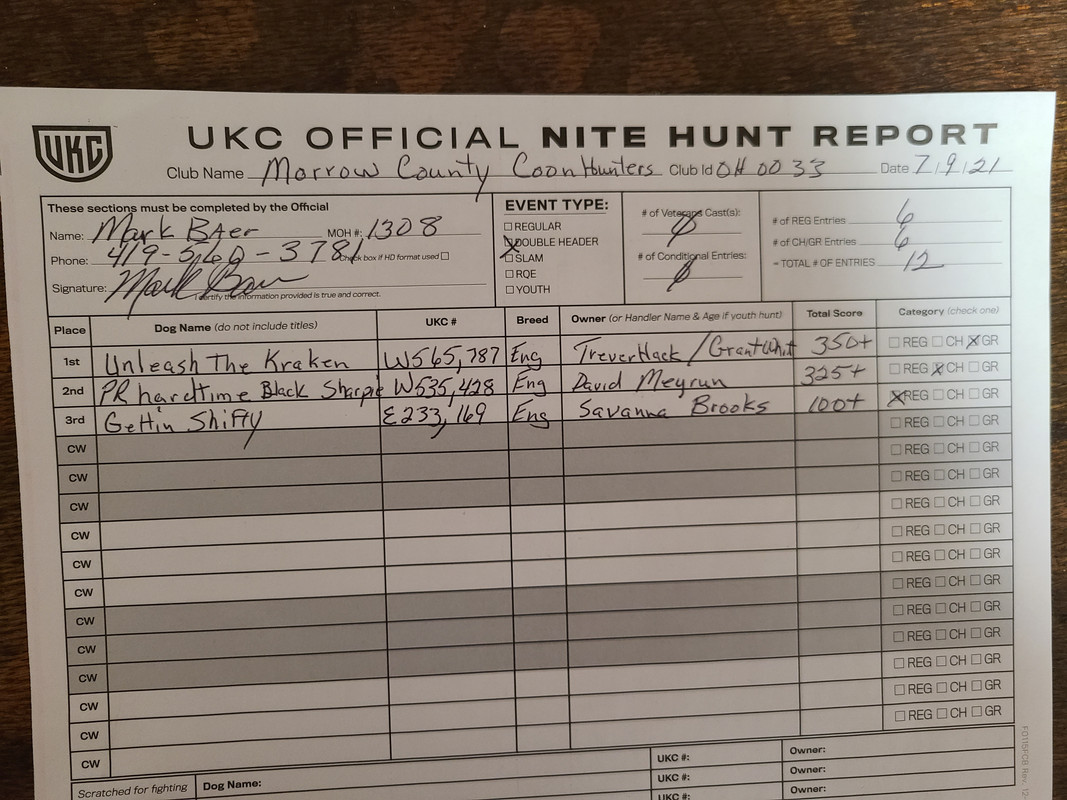 UKC
UKC OFFICIAL NITE HUNT REPORT
Club Name Morrow County CoonHunters Club Id OH 0033 Date 7/9/21
These sections must be completed by the Official
Name: Mark Baer MOH #: 1308
Phone: 419-560-3781 Check box if HD format used ☐
Signature: Mark Baer
I certify the information provided is true and correct.
EVENT TYPE:
☐ REGULAR
☒ DOUBLE HEADER
☐ SLAM
☐ RQE
☐ YOUTH
# of Veterans Cast(s): 0
# of Conditional Entries: 0
# of REG Entries 6
# of CH/GR Entries 6
= TOTAL # OF ENTRIES 12
Place Dog Name (do not include titles) UKC # Breed Owner (or Handler Name & Age if youth hunt) Total Score Category (check one)
1st Unleash The Kraken W565,787 Eng Trever Hack / Grant Whit 350+ ☐ REG ☐ CH ☒ GR
2nd PR hardtime Black Sharpie W535,428 Eng David Meyrun 325+ ☐ REG ☒ CH ☐ GR
3rd Gettin Shifty E233,169 Eng Savanna Brooks 100+ ☒ REG ☐ CH ☐ GR
☐ REG ☐ CH ☐ GR
CW ☐ REG ☐ CH ☐ GR
CW ☐ REG ☐ CH ☐ GR
CW ☐ REG ☐ CH ☐ GR
CW ☐ REG ☐ CH ☐ GR
CW ☐ REG ☐ CH ☐ GR
CW ☐ REG ☐ CH ☐ GR
CW ☐ REG ☐ CH ☐ GR
CW ☐ REG ☐ CH ☐ GR
CW ☐ REG ☐ CH ☐ GR
CW ☐ REG ☐ CH ☐ GR
CW ☐ REG ☐ CH ☐ GR
CW
Scratched for fighting Dog Name: UKC #: Owner:
UKC #: Owner:
UKC #: Owner: